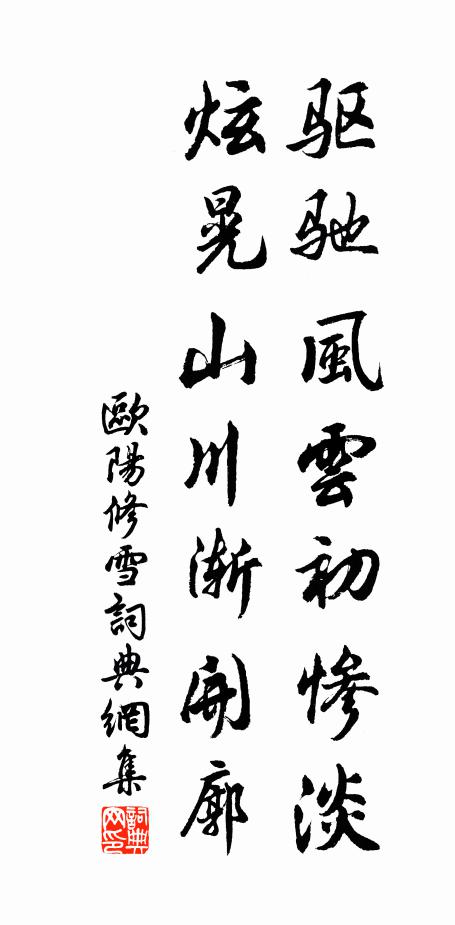 驱驰風雲初惨淡
炫晃山川渐開廓
歐陽修雪詞典網集
詞典网印